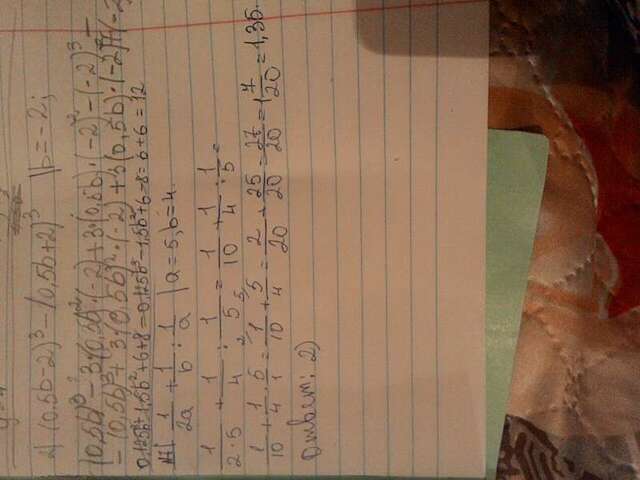 2) (0,5b-2)³ - (0,5b+2)³ | b = -2;
(0,5b)³ - 3·(0,5b)²·(-2) + 3·(0,5b)·(-2)² - (-2)³ -
- (0,5b)³ + 3·(0,5b)²·(-2) + 3(0,5b)·(-2)
0,125b³ + 1,5b² + 6 + 8 - 0,125b³ - 1,5b² + 6 - 8 = 6 + 6 = 12
1/2a + 1/b : 1/a | a = 5, b = 4.
1/2·5 + 1/4 : 1/5 = 1/10 + 1/4 : 1/5 =
1/10 + 1/4 · 5/1 = 1/10 + 5/4 = 2/20 + 25/20 = 27/20 = 1 7/20 = 1,35.
Ответ: 2)